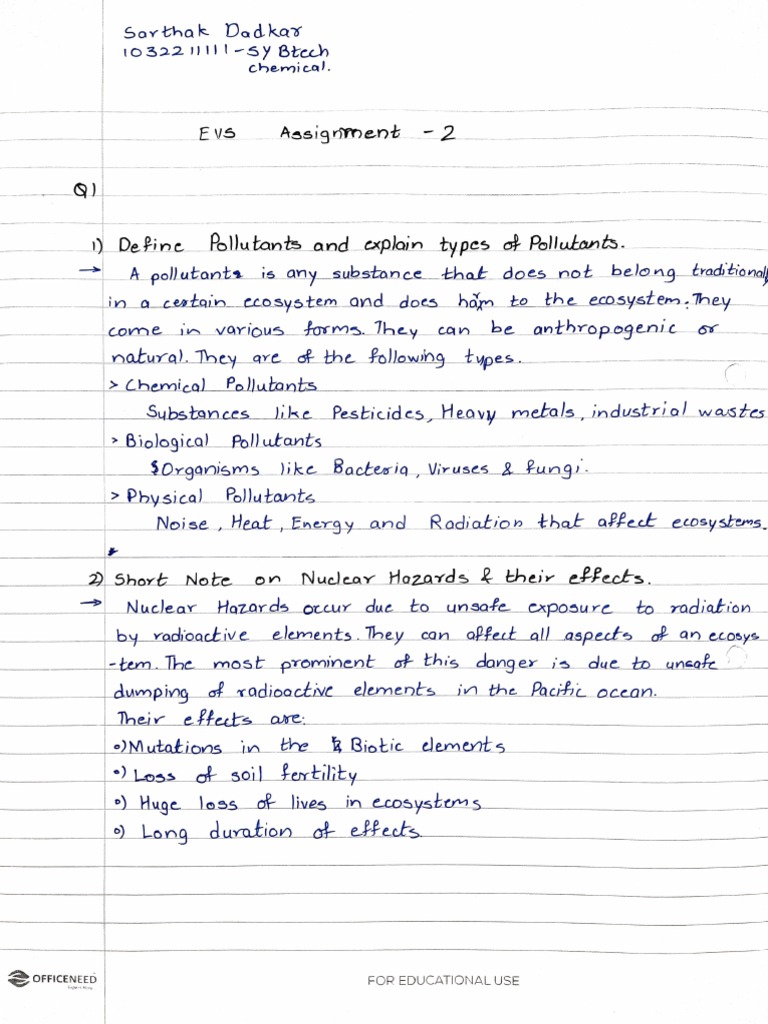 Sarthak Dadkar
1032211111-SY Btech
chemical.
EVS Assignment - 2
Q1
1) Define Pollutants and explain types of Pollutants.
→ A pollutants is any substance that does not belong traditionally
in a certain ecosystem and does harm to the ecosystem. They
come in various forms. They can be anthropogenic or
natural. They are of the following types.
> Chemical Pollutants
Substances like Pesticides, Heavy metals, industrial wastes
> Biological Pollutants
Organisms like Bacteria, Viruses & fungi.
> Physical Pollutants
Noise, Heat, Energy and Radiation that affect ecosystems.
2) Short Note on Nuclear Hazards & their effects.
→ Nuclear Hazards occur due to unsafe exposure to radiation
by radioactive elements. They can affect all aspects of an ecosys
-tem. The most prominent of this danger is due to unsafe
dumping of radioactive elements in the Pacific ocean.
Their effects are:
o) Mutations in the Biotic elements
o) Loss of soil fertility
o) Huge loss of lives in ecosystems
o) Long duration of effects
OFFICENEED
FOR EDUCATIONAL USE